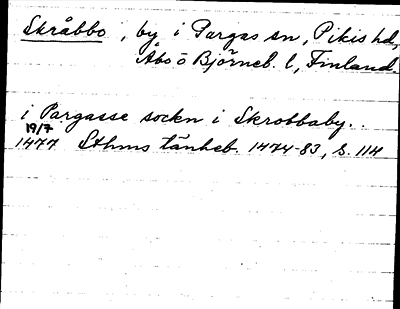 Skråbbo, by i Pargas sn, Pikis hd,
Åbo o Björneb. l, Finland.
i Pargasse sockn i Skrobbaby.
19/7
1477 Sthms tänkeb. 1474-83, s. 114